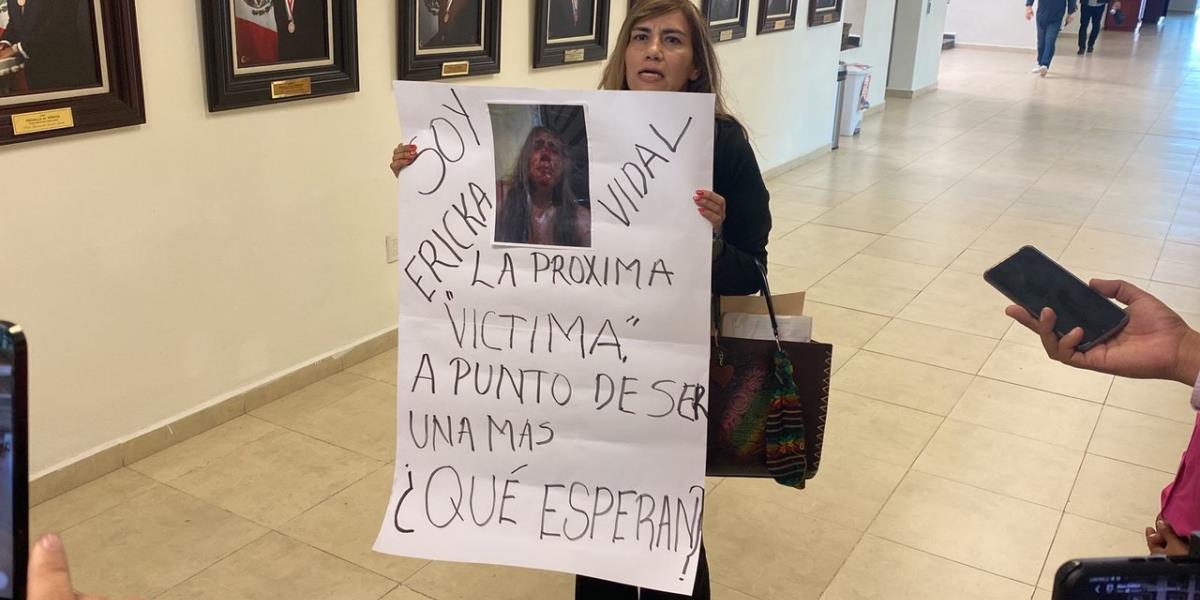 SOY
ERICKA
VIDAL
LA PROXIMA
"VICTIMA",
A PUNTO DE SER
UNA MÁS
¿QUÉ ESPERAN?